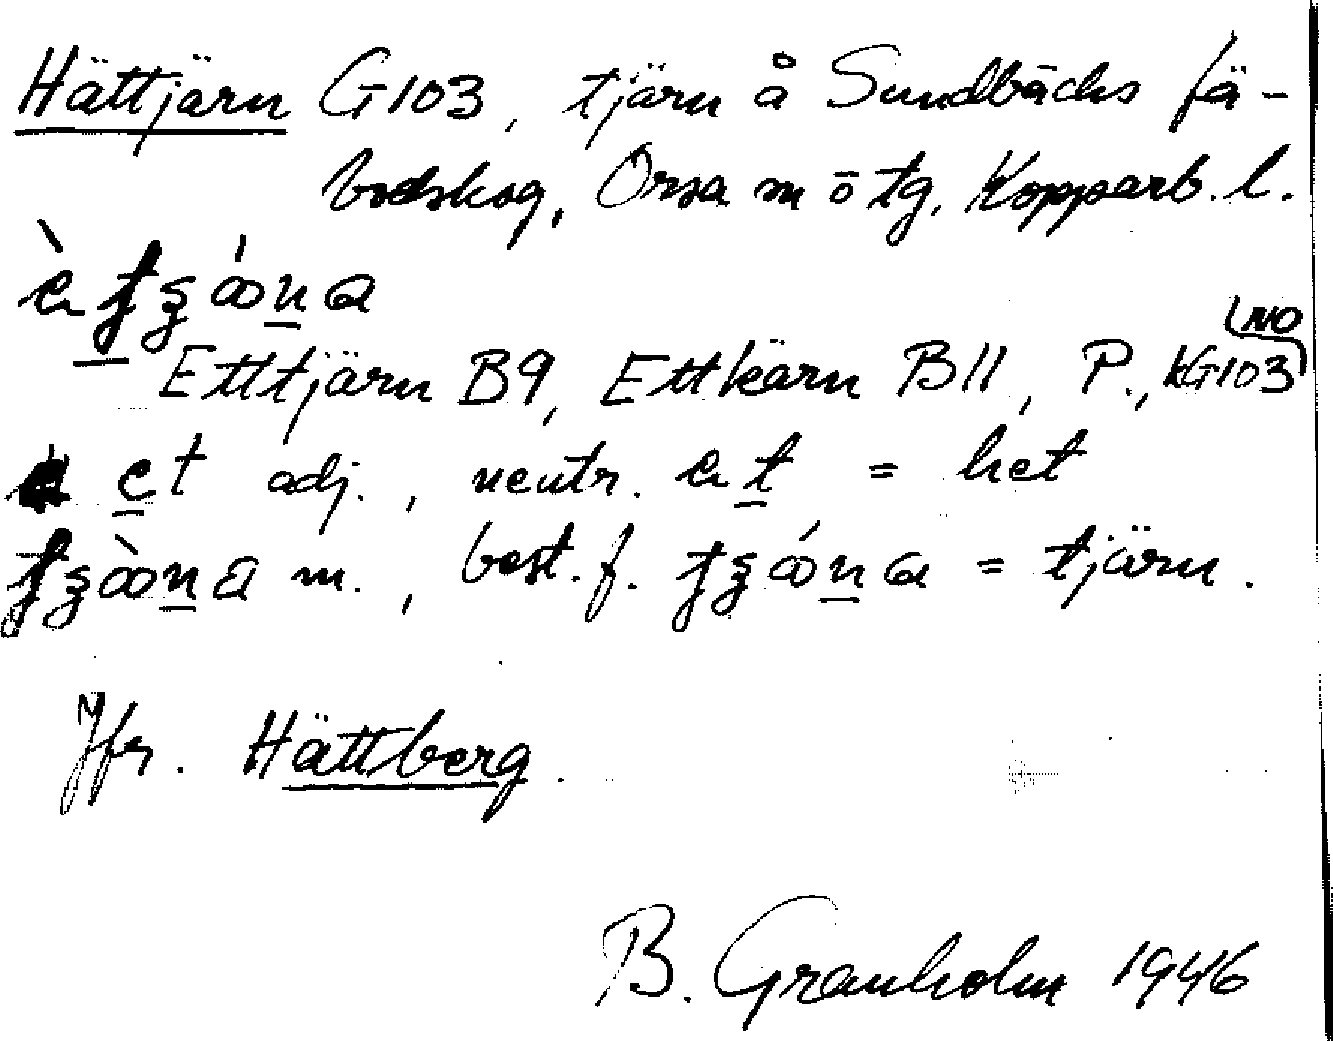 Hättjärn G103, tjärn å Sundbäcks fä-
bodskog, Orsa m o tg. Kopparb. l.
Etttjärn B9, Ettkärn B11, P., KG103
NO
et adj., neutr. et = het
m., best. f. = tjärn.
Jfr. Hättberg.
B. Granholm 1946